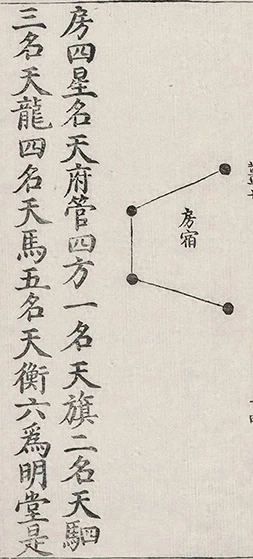 房宿
房四星名天府管四方一名天旗二名天駟
三名天龍四名天馬五名天衡六爲明堂是